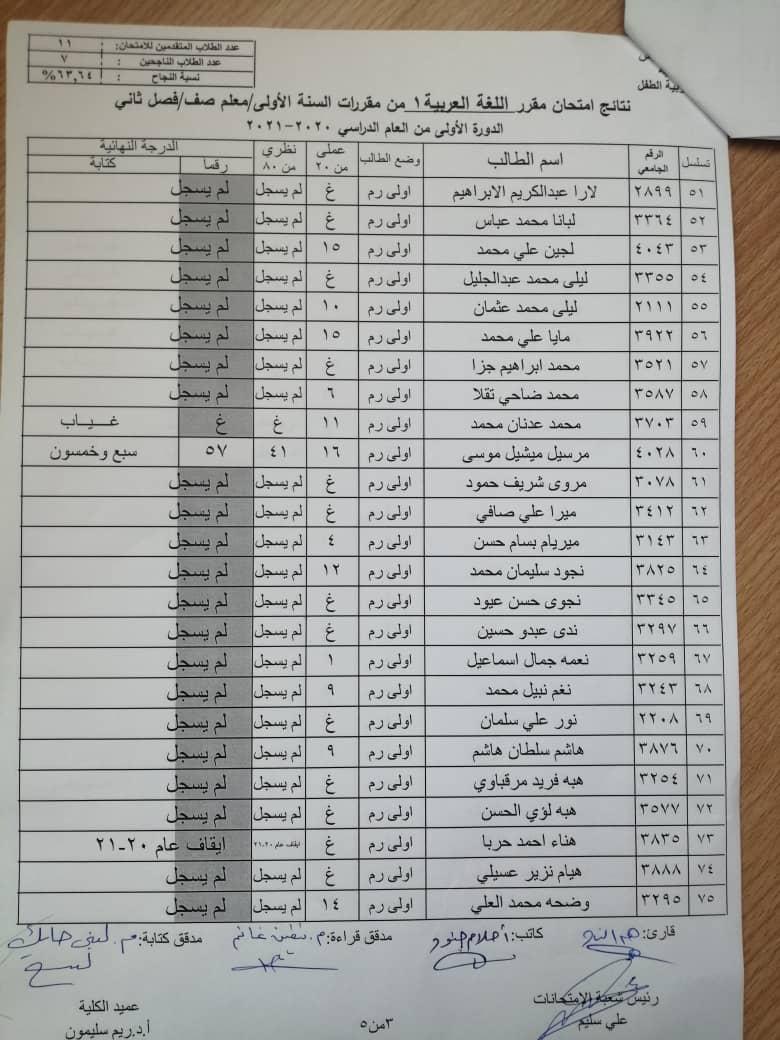 عدد الطلاب المتقدمين للامتحان: ١١
عدد الطلاب الناجحين : ٧
نسبة النجاح : ٦٣,٦٤%
بية الطفل
نتائج امتحان مقرر اللغة العربية ١ من مقررات السنة الأولى/معلم صف/فصل ثاني
الدورة الأولى من العام الدراسي ٢٠٢٠-٢٠٢١
تسلسل الرقم الجامعي اسم الطالب وضع الطالب عملي من ٢٠ نظري من ٨٠ الدرجة النهائية
رقما كتابة
٥١ ٢٨٩٩ لارا عبدالكريم الابراهيم اولى رم غ لم يسجل لم يسجل
٥٢ ٣٣٦٤ لبانا محمد عباس اولى رم غ لم يسجل لم يسجل
٥٣ ٤٠٤٣ لجين علي محمد اولى رم ١٥ لم يسجل لم يسجل
٥٤ ٣٣٥٥ ليلى محمد عبدالجليل اولى رم غ لم يسجل لم يسجل
٥٥ ٢١١١ ليلى محمد عثمان اولى رم ١٠ لم يسجل لم يسجل
٥٦ ٣٩٢٢ مايا علي محمد اولى رم ١٥ لم يسجل لم يسجل
٥٧ ٣٥٢١ محمد ابراهيم جزا اولى رم غ لم يسجل لم يسجل
٥٨ ٣٥٨٧ محمد ضاحي تقلا اولى رم ٦ لم يسجل لم يسجل
٥٩ ٣٧٠٣ محمد عدنان محمد اولى رم ١١ غ غ غـــيـــاب
٦٠ ٤٠٢٨ مرسيل ميشيل موسى اولى رم ١٦ ٤١ ٥٧ سبع وخمسون
٦١ ٣٠٧٨ مروى شريف حمود اولى رم غ لم يسجل لم يسجل
٦٢ ٣٤١٢ ميرا علي صافي اولى رم غ لم يسجل لم يسجل
٦٣ ٣١٤٣ ميريام بسام حسن اولى رم ٤ لم يسجل لم يسجل
٦٤ ٣٨٢٥ نجود سليمان محمد اولى رم ١٢ لم يسجل لم يسجل
٦٥ ٣٣٤٥ نجوى حسن عيود اولى رم غ لم يسجل لم يسجل
٦٦ ٣٢٩٧ ندى عبدو حسين اولى رم غ لم يسجل لم يسجل
٦٧ ٣٢٥٩ نعمه جمال اسماعيل اولى رم ١ لم يسجل لم يسجل
٦٨ ٣٢٤٣ نغم نبيل محمد اولى رم ٩ لم يسجل لم يسجل
٦٩ ٢٢٠٨ نور علي سلمان اولى رم غ لم يسجل لم يسجل
٧٠ ٣٨٧٦ هاشم سلطان هاشم اولى رم ٩ لم يسجل لم يسجل
٧١ ٣٢٥٤ هبه فريد مرقباوي اولى رم غ لم يسجل لم يسجل
٧٢ ٣٥٧٧ هبه لؤي الحسن اولى رم غ لم يسجل لم يسجل
٧٣ ٣٨٣٥ هناء احمد حربا اولى رم غ ايقاف عام ٢٠-٢١ ايقاف عام ٢٠-٢١
٧٤ ٣٨٨٨ هيام نزير عسيلي اولى رم غ لم يسجل لم يسجل
٧٥ ٣٢٩٥ وضحه محمد العلي اولى رم ١٤ لم يسجل لم يسجل
قارئ: كاتب: أحلام مدقق قراءة: م. غانم مدقق كتابة: م. لبنى
رئيس شعبة الإمتحانات
علي سليم
عميد الكلية
أ.د.ريم سليمون
٣من٥